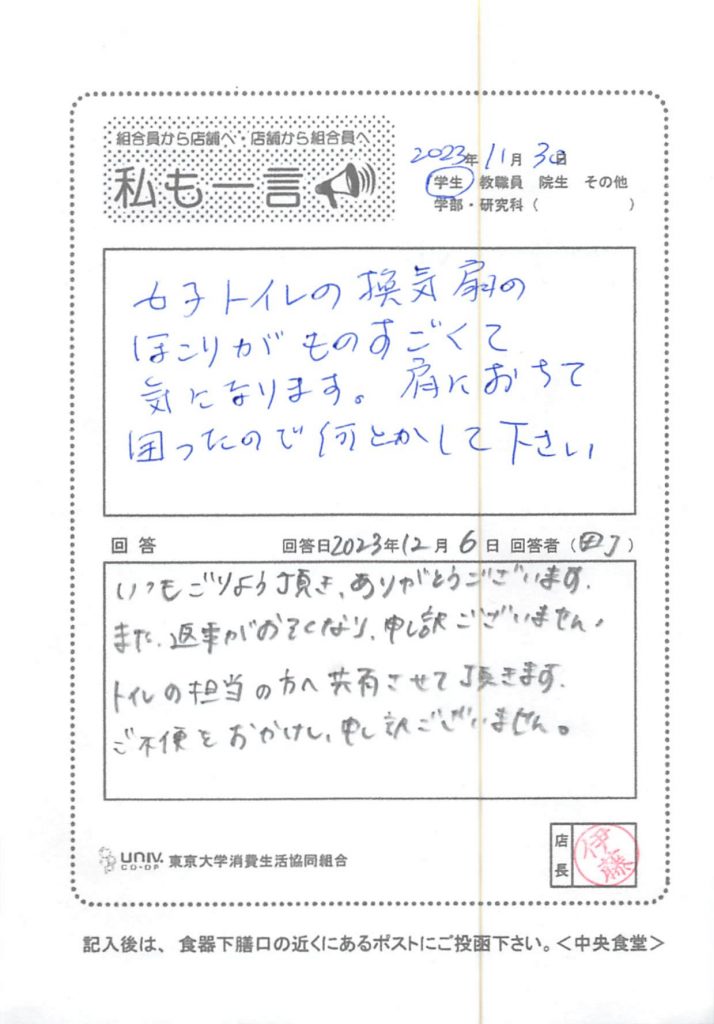 組合員から店舗へ・店舗から組合員へ
私も一言
2023年11月30日
学生 教職員 院生 その他
学部・研究科（ ）
女子トイレの換気扇の
ほこりがものすごくて
気になります。肩におちて
困ったので何とかして下さい
回答 回答日2023年12月6日 回答者（ ）
いつもごりよう頂き、ありがとうございます.
また、返事がおそくなり、申し訳ございません.
トイレの担当の方へ共有させて頂きます.
ご不便をおかけし、申し訳ございません。
UNIV. CO-OP 東京大学消費生活協同組合
店長 伊藤
記入後は、食器下膳口の近くにあるポストにご投函下さい。＜中央食堂＞